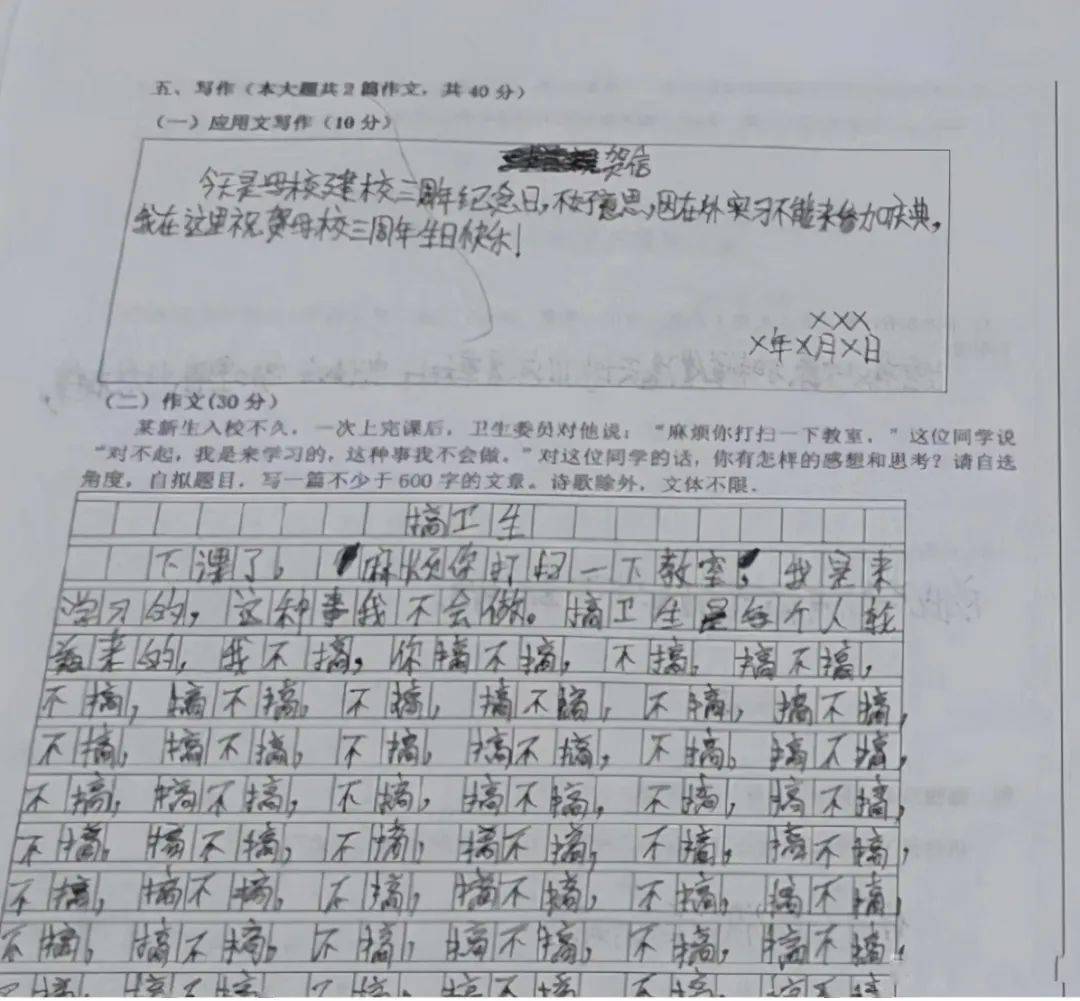 五、写作（本大题共2篇作文，共40分）
（一）应用文写作（10分）
贺信
今天是母校建校三周年纪念日，不好意思，因在外实习不能来参加庆典，
我在这里祝贺母校三周年生日快乐！
×××
×年×月×日
（二）作文(30分)
某新生入校不久，一次上完课后，卫生委员对他说：“麻烦你打扫一下教室。”这位同学说
“对不起，我是来学习的，这种事我不会做。”对这位同学的话，你有怎样的感想和思考？请自选
角度，自拟题目，写一篇不少于600字的文章。诗歌除外，文体不限.
搞卫生
下课了。麻烦你打扫一下教室，我是来
学习的，这种事我不会做。搞卫生是每个人轮
着来的，我不搞，你搞不搞，不搞，搞不搞，
不搞，搞不搞，不搞，搞不搞，不搞，搞不搞，
不搞，搞不搞，不搞，搞不搞，不搞，搞不搞，
不搞，搞不搞，不搞，搞不搞，不搞，搞不搞，
不搞，搞不搞，不搞，搞不搞，不搞，搞不搞，
不搞，搞不搞，不搞，搞不搞，不搞，搞不搞，
不搞，搞不搞，不搞，搞不搞，不搞，搞不搞，
不搞，搞不搞，不搞，搞不搞，不搞，搞不搞